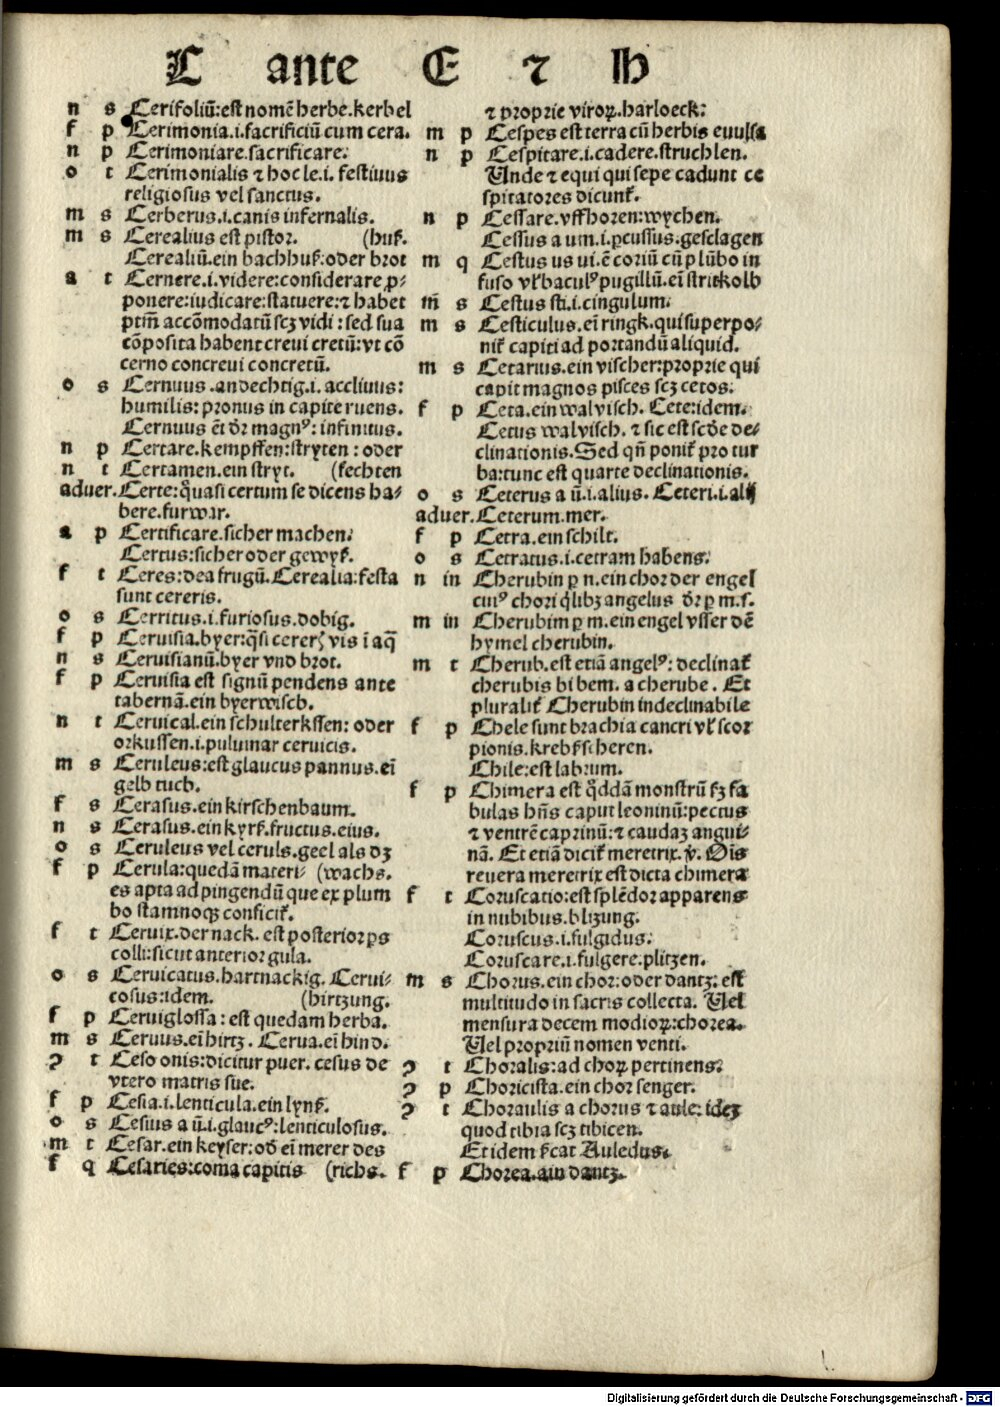 C ante E ⁊ h
n s Cerifoliū:est nomē herbe.kerbel
f p Cerimonia.i.sacrificiū cum cera.
n p Cerimoniare.sacrificare.
o t Cerimonialis ⁊ hoc le.i. festiuus
religiosus vel sanctus.
m s Cerberus.i.canis infernalis.
m s Cerealius est pistor. (huß.
Cerealiū.ein bachhuß:oder brot
a t Cernere.i.videre:considerare ꝓ-
ponere:iudicare:statuere:⁊ habet
ptm̄ accōmodatū scꝫ vidi : sed sua
cōposita habent creui cretū:vt cō
cerno concreui concretū.
o s Cernuus.andechtig.i. accliuus:
humilis: pronus in capite ruens.
Cernuus etī dr̄ magnꝰ: infinitus.
n p Certare.kempffen:stryten : oder
n t Certamen.ein stryt. (fechten
aduer. Certe:q̄uasi certum se dicens ha-
bere.furwar.
a p Certificare.sicher machen.
Certus:sicher oder gewyß.
f t Ceres:dea frugū.Cerealia:festa
sunt cereris.
o s Cerritus.i.furiosus.dobig.
f p Ceruisia.byer:q̄si cererꝭ vis ī aq̄
n s Ceruisianū.byer vnd brot.
f p Ceruisia est signū pendens ante
tabernā.ein byerwisch.
n t Ceruical.ein schulterkssen: oder
orkussen.i.puluinar ceruicis.
m s Ceruleus:est glaucus pannus.eī
gelb tuch.
f s Cerasus.ein kirschenbaum.
n s Cerasus.ein kyrß.fructus eius.
o s Ceruleus vel ceruls.geel als dꝫ
f p Cerula:quedā materi- (wachs.
es apta ad pingendū que ex plum
bo stamnoqꝫ conficiť.
f t Ceruix.der nack. est posterior ꝑs
colli:sicut anterior gula.
o s Ceruicatus.hartnackig. Cerui-
cosus:idem. (hirtzung.
f p Ceruiglossa : est quedam herba.
m s Ceruus.eī hirtz. Cerua.eī hind.
ꝯ t Ceso onis:dicitur puer. cesus de
vtero matris sue.
f p Cesia.i.lenticula.ein lynß.
o s Cesius a ū.i.glaucꝰ:lenticulosus.
m t Cesar.ein keyser:od̄ eī merer des
f q Cesaries:coma capitis (richs.
⁊ proprie viroꝝ.harloeck:
m p Cespes est terra cū herbis euulsa
n p Cespitare.i.cadere.struchlen.
Unde ⁊ equi qui sepe cadunt ce
spitatores dicunť.
n p Cessare.vffhoren:wychen.
Cessus a um.i.ꝑcussus.gesclagen
m q Cestus us ui.ē coriū cū plūbo in
fuso vl̓ baculꝰ pugillū.eī stritkolb
m̄ s Cestus sti.i.cingulum.
m s Cesticulus.eī ringk.qui superpo-
niť capiti ad portandū aliquid.
m s Cetarius.ein vischer:proprie qui
capit magnos pisces scꝫ cetos.
f p Ceta.ein walvisch. Cete:idem.
Cetus walvisch. ⁊ sic est scd̄e de-
clinationis.Sed qn̄ poniť pro tur
ba:tunc est quarte declinationis.
o s Ceterus a ū.i.alius. Ceteri.i.alij
aduer. Ceterum.mer.
f p Cetra.ein schilt.
o s Cetratus.i.cetram habens.
n in Cherubin ꝑ n.ein chor der engel
cuiꝰ chori q̄libꝫ angelus dr̄ ꝑ m.s.
m in Cherubim ꝑ m.ein engel vsser dē
hymel cherubin.
m t Cherub.est etiā angelꝰ: declinať
cherubis bi bem. a cherube . Et
pluraliť Cherubin indeclinabile
f p Chele sunt brachia cancri vl̓ scor
pionis.krebßscheren.
Chile:est labrum.
f p Chimera est q̄ddā monstrū ßꝫ fa
bulas hn̄s caput leoninū:pectus
⁊ ventrē caprinū:⁊ caudaꝫ angui-
nā. Et etiā diciť meretrix. ꝟ. Ois
reuera meretrix est dicta chimera
f t Coruscatio:est splēdor apparens
in nubibus.blizung.
Coruscus.i.fulgidus.
Coruscare.i.fulgere.plitzen.
m s Chorus.ein chor:oder dantz: est
multitudo in sacris collecta. Uel
mensura decem modioꝝ:chorea.
Uel propriū nomen venti.
ꝯ t Choralis:ad choꝝ pertinens.
ꝯ p Choricista.ein chor senger.
ꝯ t Choraulis a chorus ⁊ aule: ideꝫ
quod tibia scꝫ tibicen.
Et idem ßcat Auledus.
f p Chorea.ain dantz.
Digitalisierung gefördert durch die Deutsche Forschungsgemeinschaft - DFG